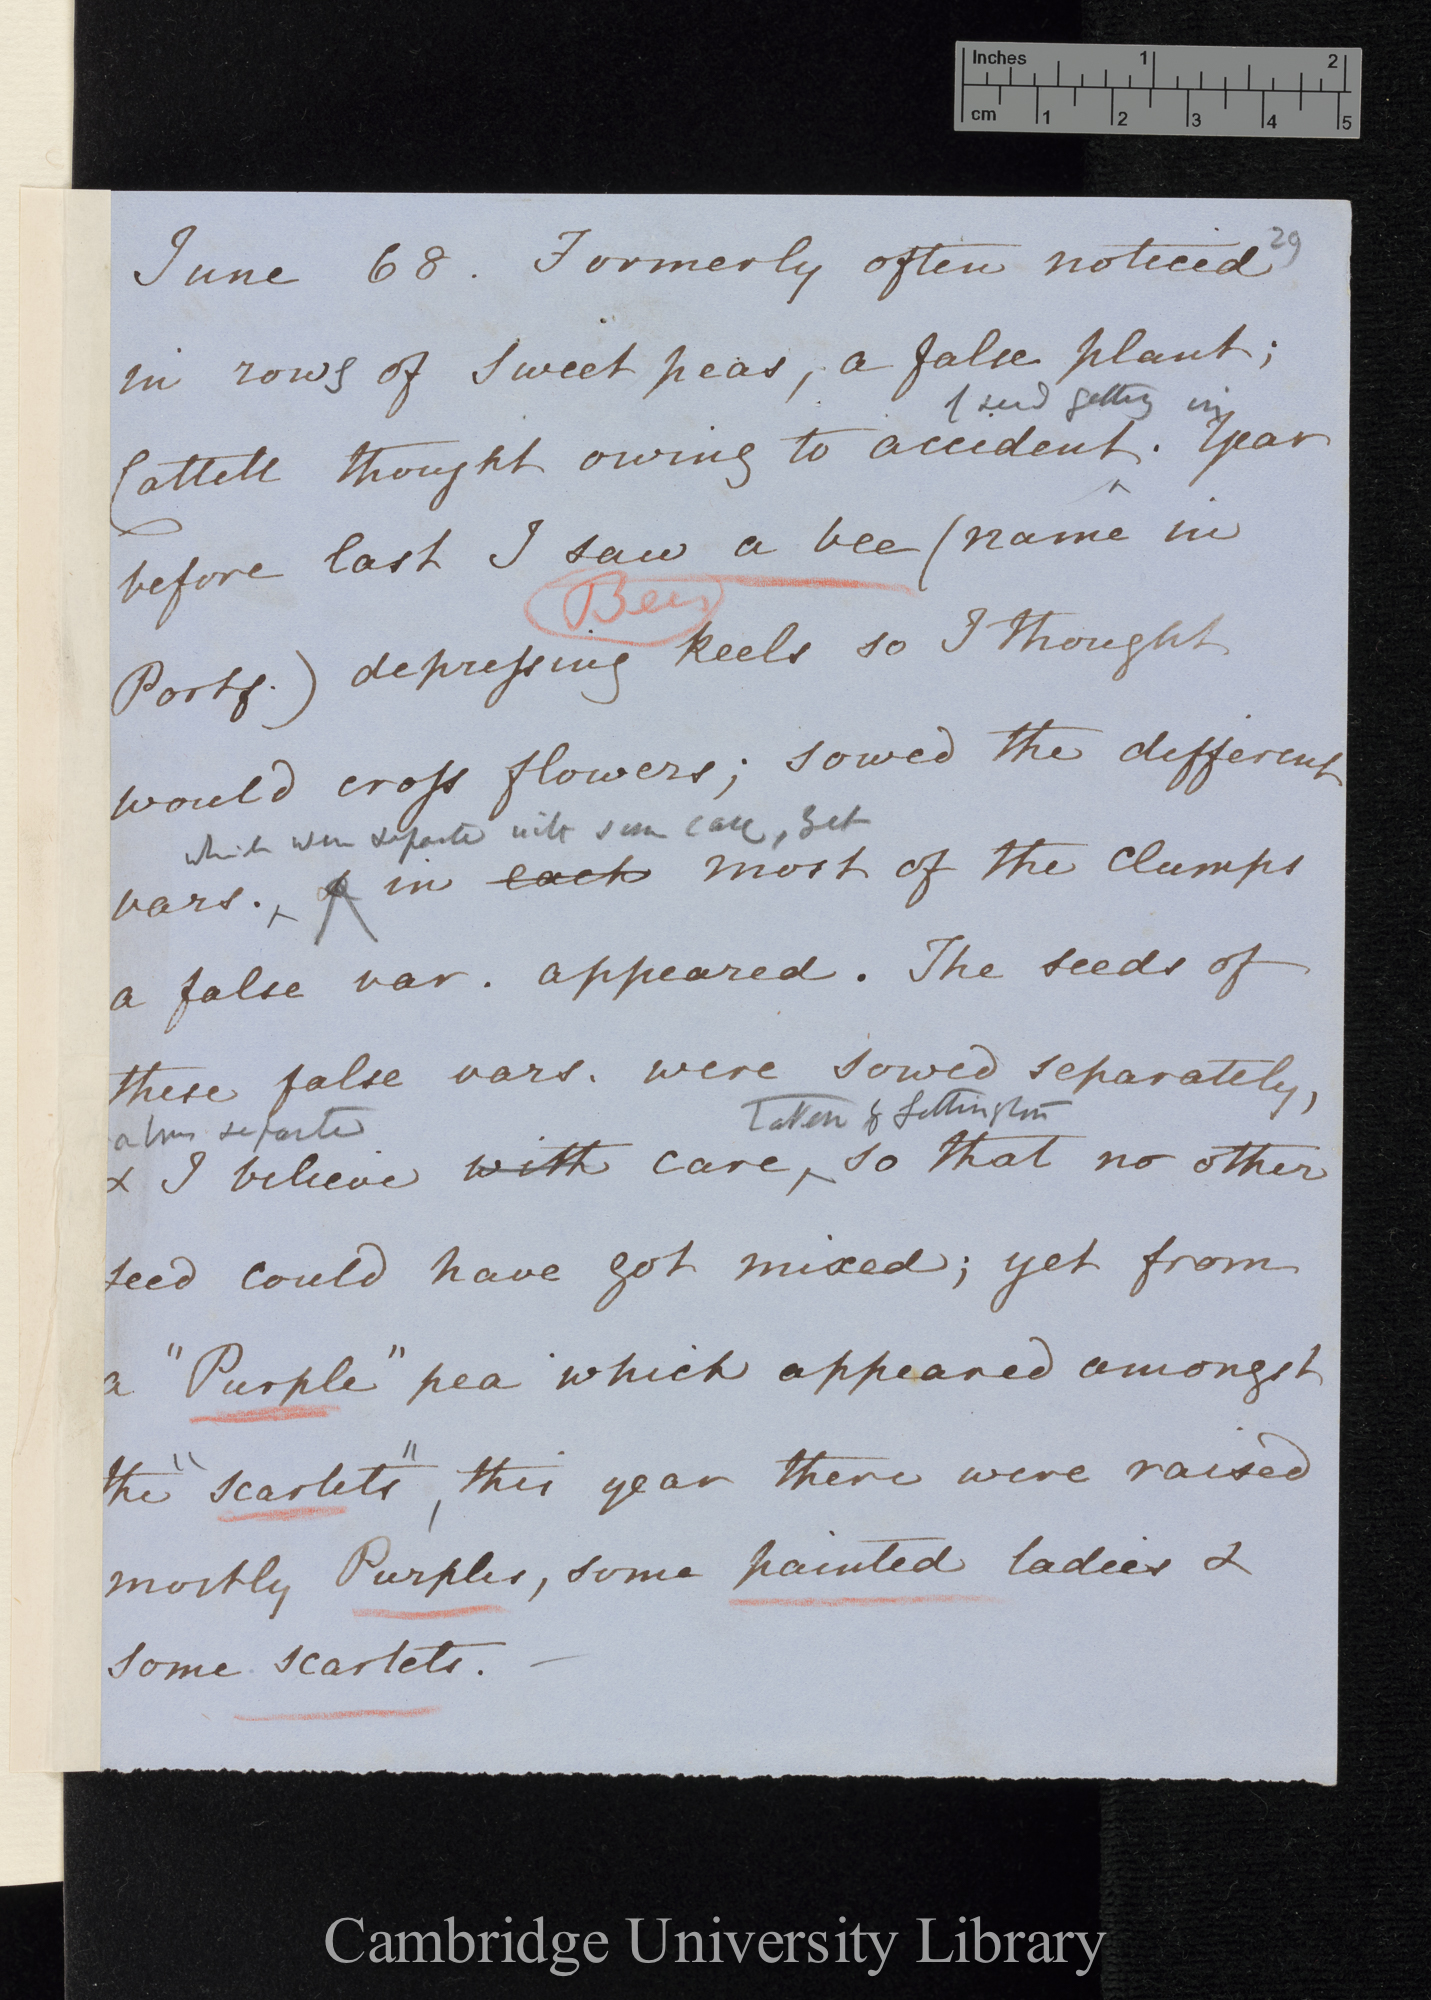 Inches 1 2
cm 1 2 3 4 5
29
June 68. Formerly often noticed
in rows of sweet peas, a false plant;
of seed getting in
Cattell thought owing to accident. Year
before last I saw a bee (name in
Bees
Portf.) depressing keels so I thought
would cross flowers; sowed the different
which were separate with some care, yet
vars. & in each most of the clumps
a false var. appeared. The seeds of
these false vars. were sowed separately,
separate taken by Lettington
& I believe with care, so that no other
seed could have got mixed; yet from
a "Purple" pea which appeared amongst
the "scarlets", this year there were raised
mostly Purples, some painted ladies &
some scarlets. —
Cambridge University Library